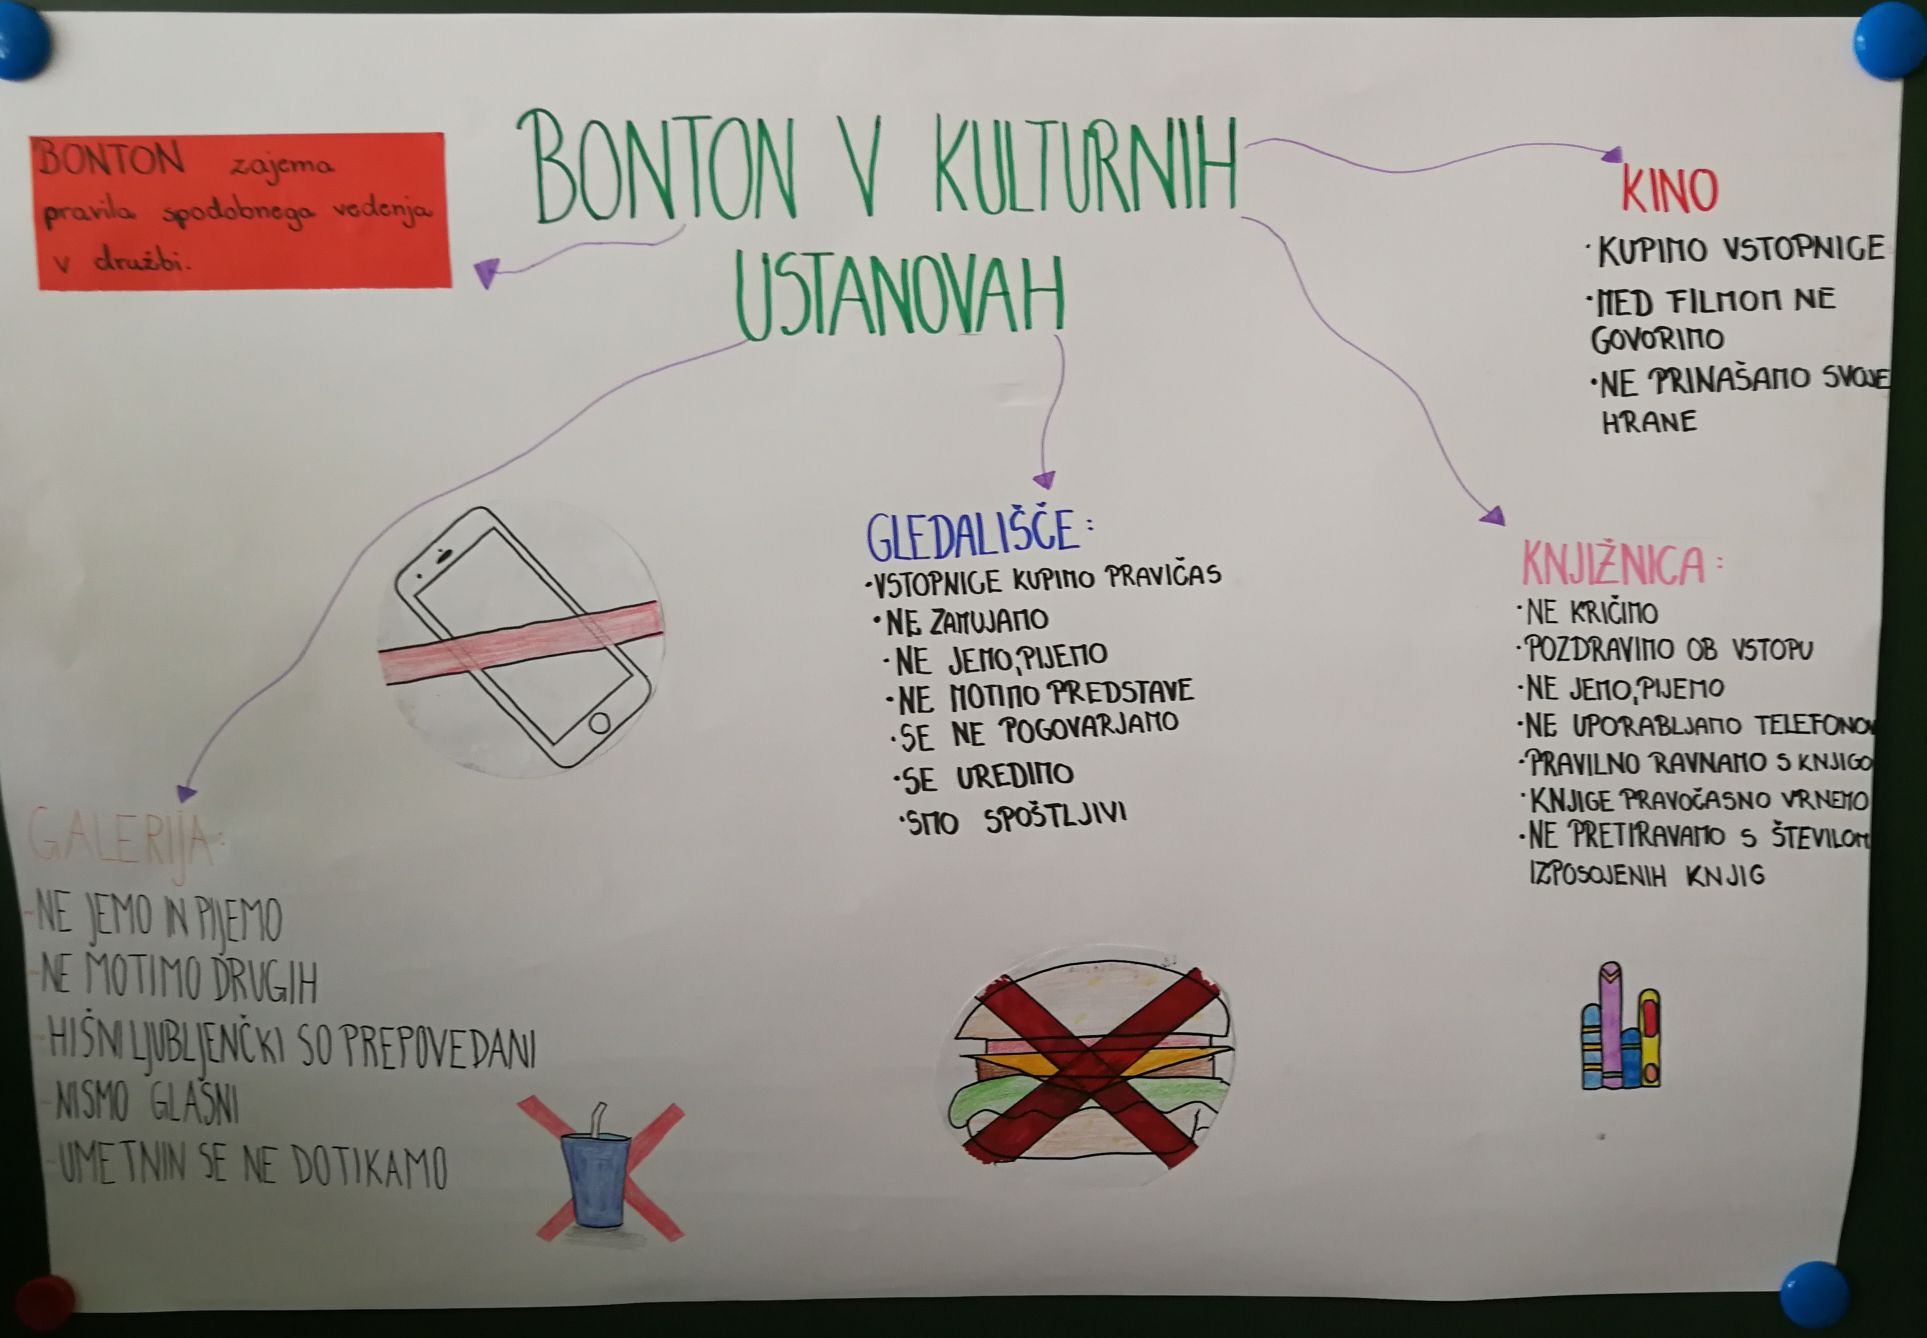 BONTON V KULTURNIH
USTANOVAH
BONTON zajema
pravila spodobnega vedenja
v družbi.
KINO
•KUPIMO VSTOPNICE
•MED FILMOM NE
GOVORIMO
•NE PRINAŠAMO SVOJE
HRANE
GLEDALIŠČE:
•VSTOPNICE KUPIMO PRAVIČAS
•NE ZAMUJAMO
•NE JEMO,PIJEMO
•NE MOTIMO PREDSTAVE
•SE NE POGOVARJAMO
•SE UREDIMO
•SMO SPOŠTLJIVI
KNJIŽNICA:
•NE KRIČIMO
•POZDRAVIMO OB VSTOPU
•NE JEMO,PIJEMO
•NE UPORABLJAMO TELEFONOV
•PRAVILNO RAVNAMO S KNJIGO
•KNJIGE PRAVOČASNO VRNEMO
•NE PRETIRAVAMO S ŠTEVILOM
IZPOSOJENIH KNJIG
GALERIJA:
-NE JEMO IN PIJEMO
-NE MOTIMO DRUGIH
-HIŠNI LJUBLJENČKI SO PREPOVEDANI
-NISMO GLASNI
-UMETNIN SE NE DOTIKAMO